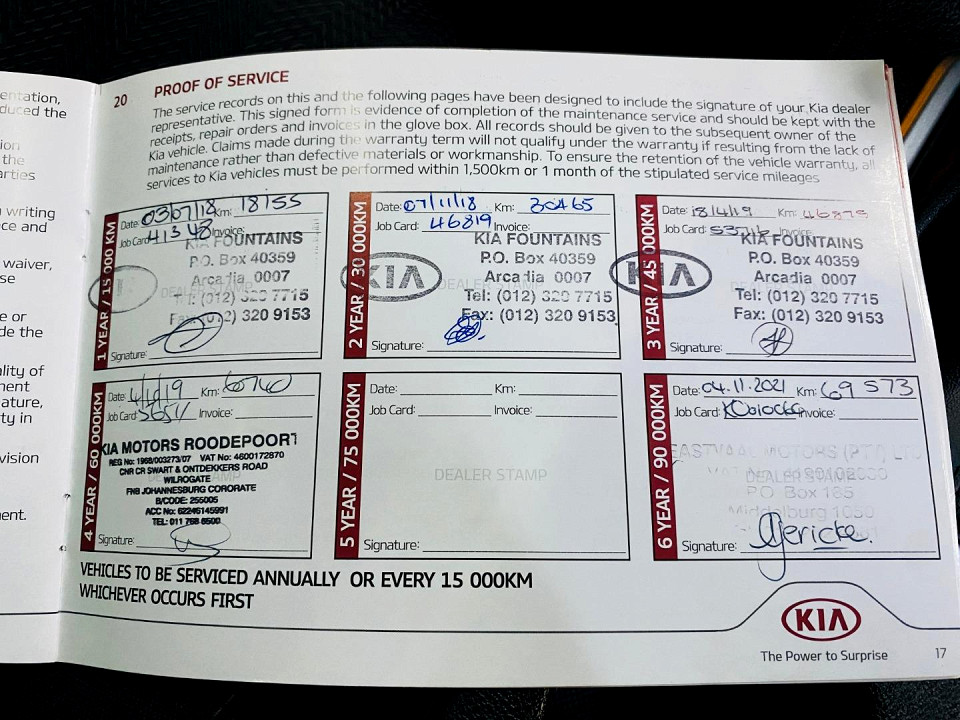 entation,
duced the
ion
the
arties
writing
ce and
waiver,
se
e or
de the
ality of
nent
ature,
ty in
vision
ent.
20 PROOF OF SERVICE
The service records on this and the following pages have been designed to include the signature of your Kia dealer
representative. This signed form is evidence of completion of the maintenance service and should be kept with the
receipts, repair orders and invoices in the glove box. All records should be given to the subsequent owner of the
Kia vehicle. Claims made during the warranty term will not qualify under the warranty if resulting from the lack of
maintenance rather than defective materials or workmanship. To ensure the retention of the vehicle warranty, all
services to Kia vehicles must be performed within 1,500km or 1 month of the stipulated service mileages
1 YEAR / 15 000 KM
Date: 03/07/18 Km: 18155
Job Card: 41348 Invoice:
KIA FOUNTAINS
P.O. Box 40359
Arcadia 0007
Tel: (012) 320 7715
Fax: (012) 320 9153
DEALER STAMP
Signature:
2 YEAR / 30 000KM
Date: 07/11/18 Km: 30465
Job Card: 46819 Invoice:
KIA FOUNTAINS
P.O. Box 40359
KIA
Arcadia 0007
DEALER STAMP
Tel: (012) 320 7715
Fax: (012) 320 9153
Signature:
3 YEAR / 45 000KM
Date: 18/4/19 Km: 46875
Job Card: Invoice:
KIA FOUNTAINS
P.O. Box 40359
KIA
Arcadia 0007
DEALER STAMP
Tel: (012) 320 7715
Fax: (012) 320 9153
Signature:
4 YEAR / 60 000KM
Date: Km: 60740
Job Card: Invoice:
KIA MOTORS ROODEPOORT
REG No: 1968/003273/07 VAT No: 4600172870
CNR CR SWART & ONTDEKKERS ROAD
WILROGATE
FNB JOHANNESBURG CORORATE
B/CODE: 255005
ACC No: 62246145991
TEL: 011 768 6500
Signature:
5 YEAR / 75 000KM
Date: Km:
Job Card: Invoice:
DEALER STAMP
Signature:
6 YEAR / 90 000KM
Date: 04.11.2021 Km: 69 573
Job Card: Invoice:
EASTVAAL MOTORS (PTY) LTD
DEALER STAMP
PO Box 185
Middelburg 1050
Signature: Gericke.
VEHICLES TO BE SERVICED ANNUALLY OR EVERY 15 000KM
WHICHEVER OCCURS FIRST
KIA
The Power to Surprise
17